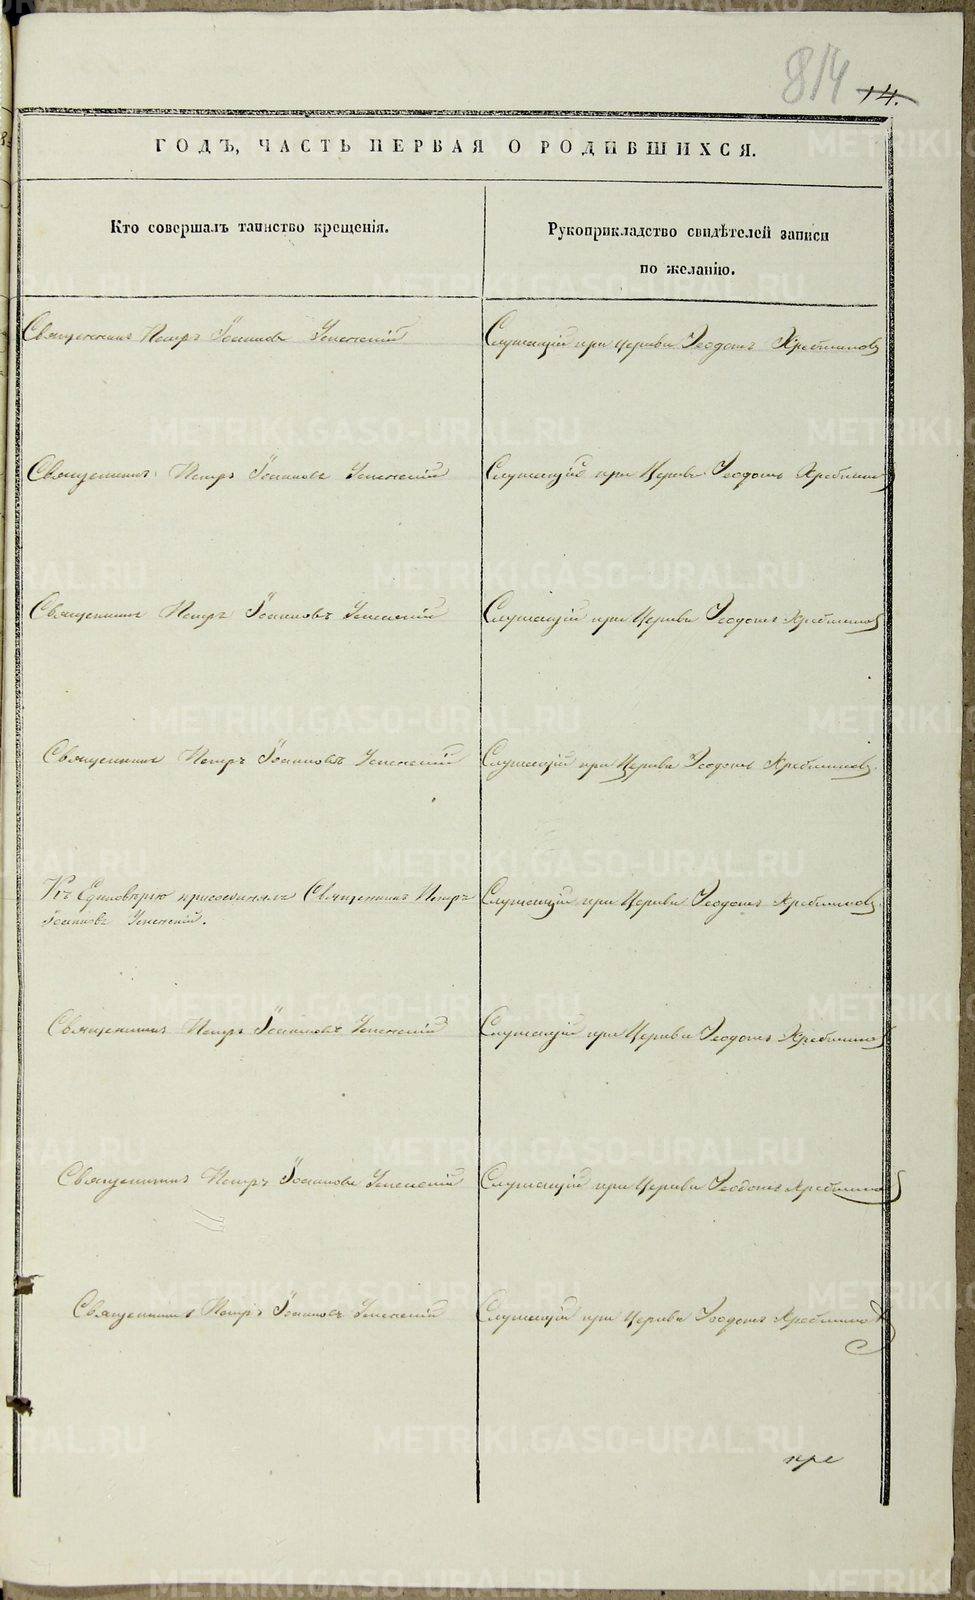 814 14.
ГОДЪ, ЧАСТЬ ПЕРВАЯ О РОДИВШИХСЯ.
Кто совершалъ таинство крещенія.
Рукоприкладство свидѣтелей записи
по желанію.
Священникъ Петръ Іоанновъ Успенскій
Служащій при Церкви Ѳеодотъ
Священникъ Петръ Іоанновъ Успенскій
Служащій при Церкви Ѳеодотъ
Священникъ Петръ Іоанновъ Успенскій
Служащій при Церкви Ѳеодотъ
Священникъ Петръ Іоанновъ Успенскій
Служащій при Церкви Ѳеодотъ
Къ Единовѣрію присоединялъ Священникъ Петръ
Іоанновъ Успенскій.
Служащій при Церкви Ѳеодотъ
Священникъ Петръ Іоанновъ Успенскій
Служащій при Церкви Ѳеодотъ
Священникъ Петръ Іоанновъ Успенскій
Служащій при Церкви Ѳеодотъ
Священникъ Петръ Іоанновъ Успенскій
Служащій при Церкви Ѳеодотъ
METRIKI.GASO-URAL.RU